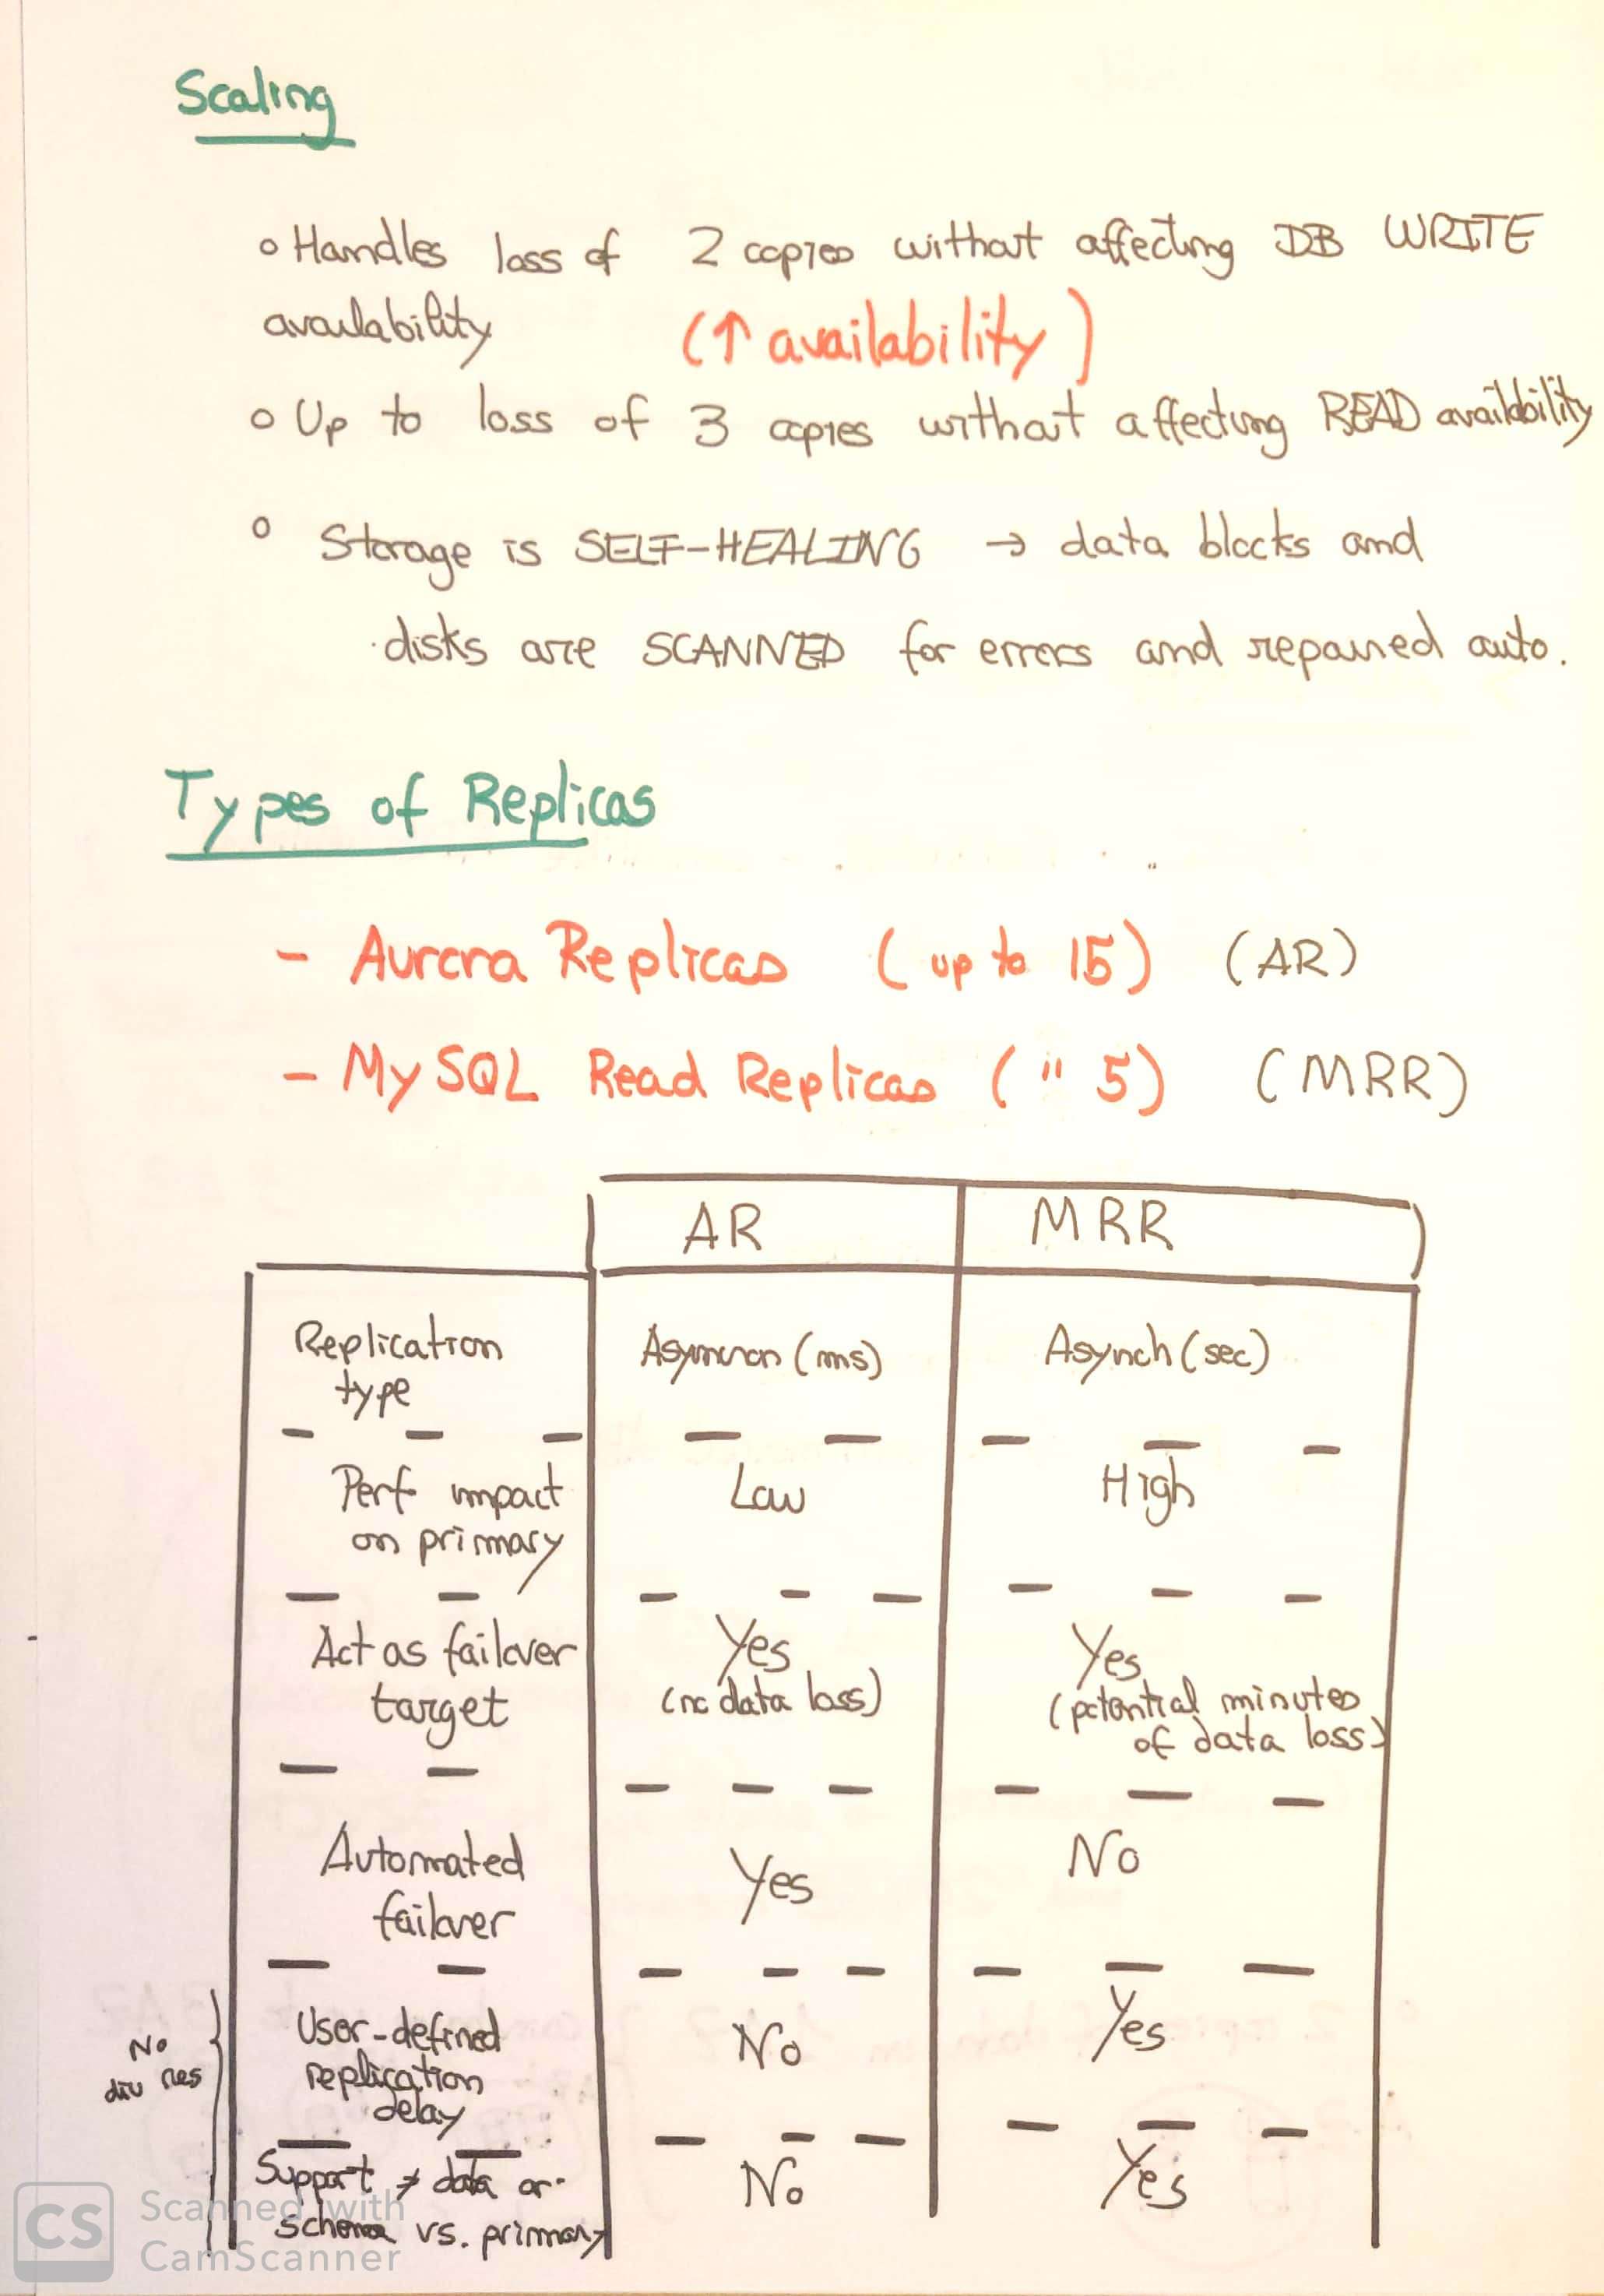 Scaling
o Handles loss of 2 copies without affecting DB WRITE
availability (↑ availability)
o Up to loss of 3 copies without affecting READ availability
o Storage is SELF-HEALING → data blocks and
disks are SCANNED for errors and repaired auto.
Types of Replicas
- Aurora Replicas (up to 15) (AR)
- MySQL Read Replicas (" 5) (MRR)
AR MRR
Replication
type
(ms) Asynch (sec)
Perf impact
on primary
Low High
Act as failover
target
Yes
(no data loss)
Yes
(potential minutes
of data loss)
Automated
failover
Yes No
No
res
User-defined
replication
delay
No Yes
Support ≠ data or
schema vs. primary
No Yes
CS Scanned with
CamScanner